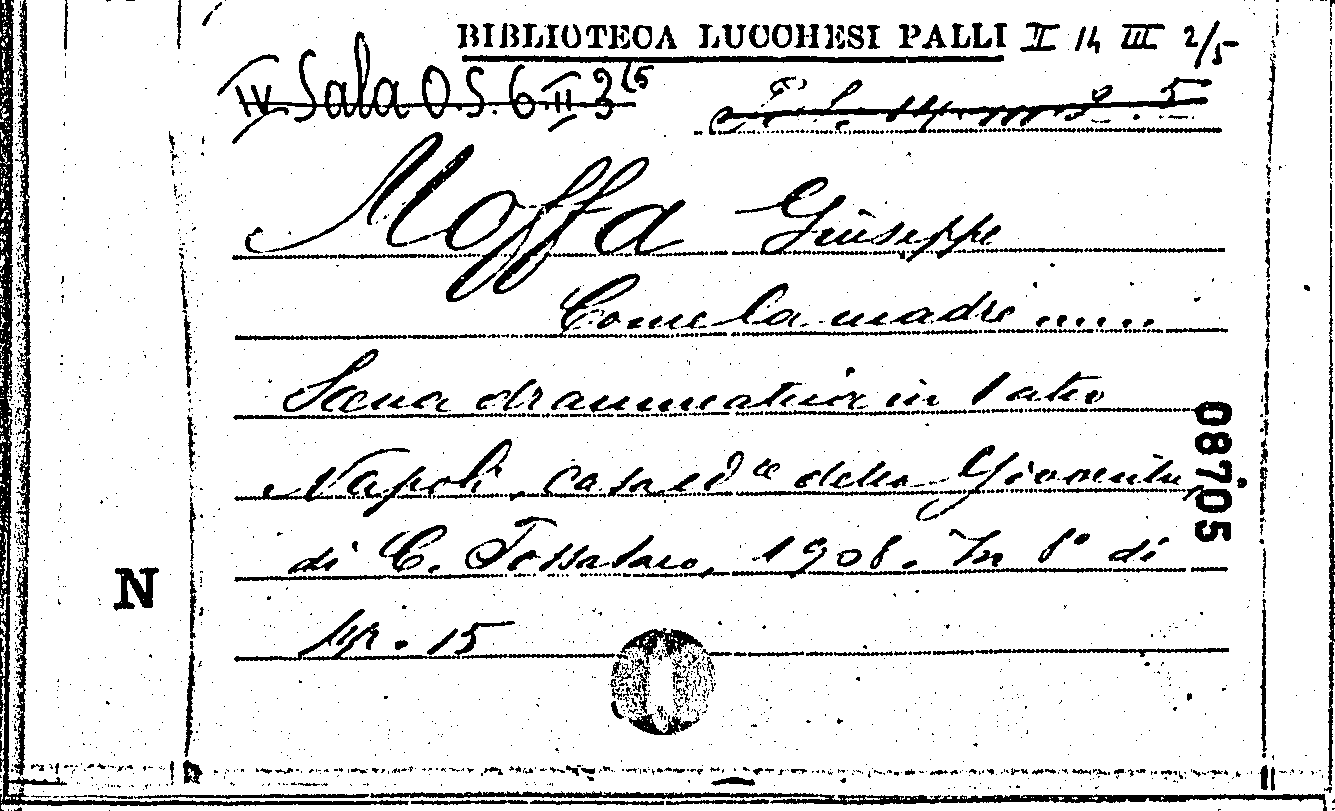 BIBLIOTECA LUCCHESI PALLI II 14 III 2/5
IV Sala O.S. 6 II 3 (5
Moffa Giuseppe
Come la madre ......
Scena drammatica in 1 atto
Napoli, casa ed.ce della Gioventù
di C. Tossataro, 1908. In 8° di
pp. 15
08705
N